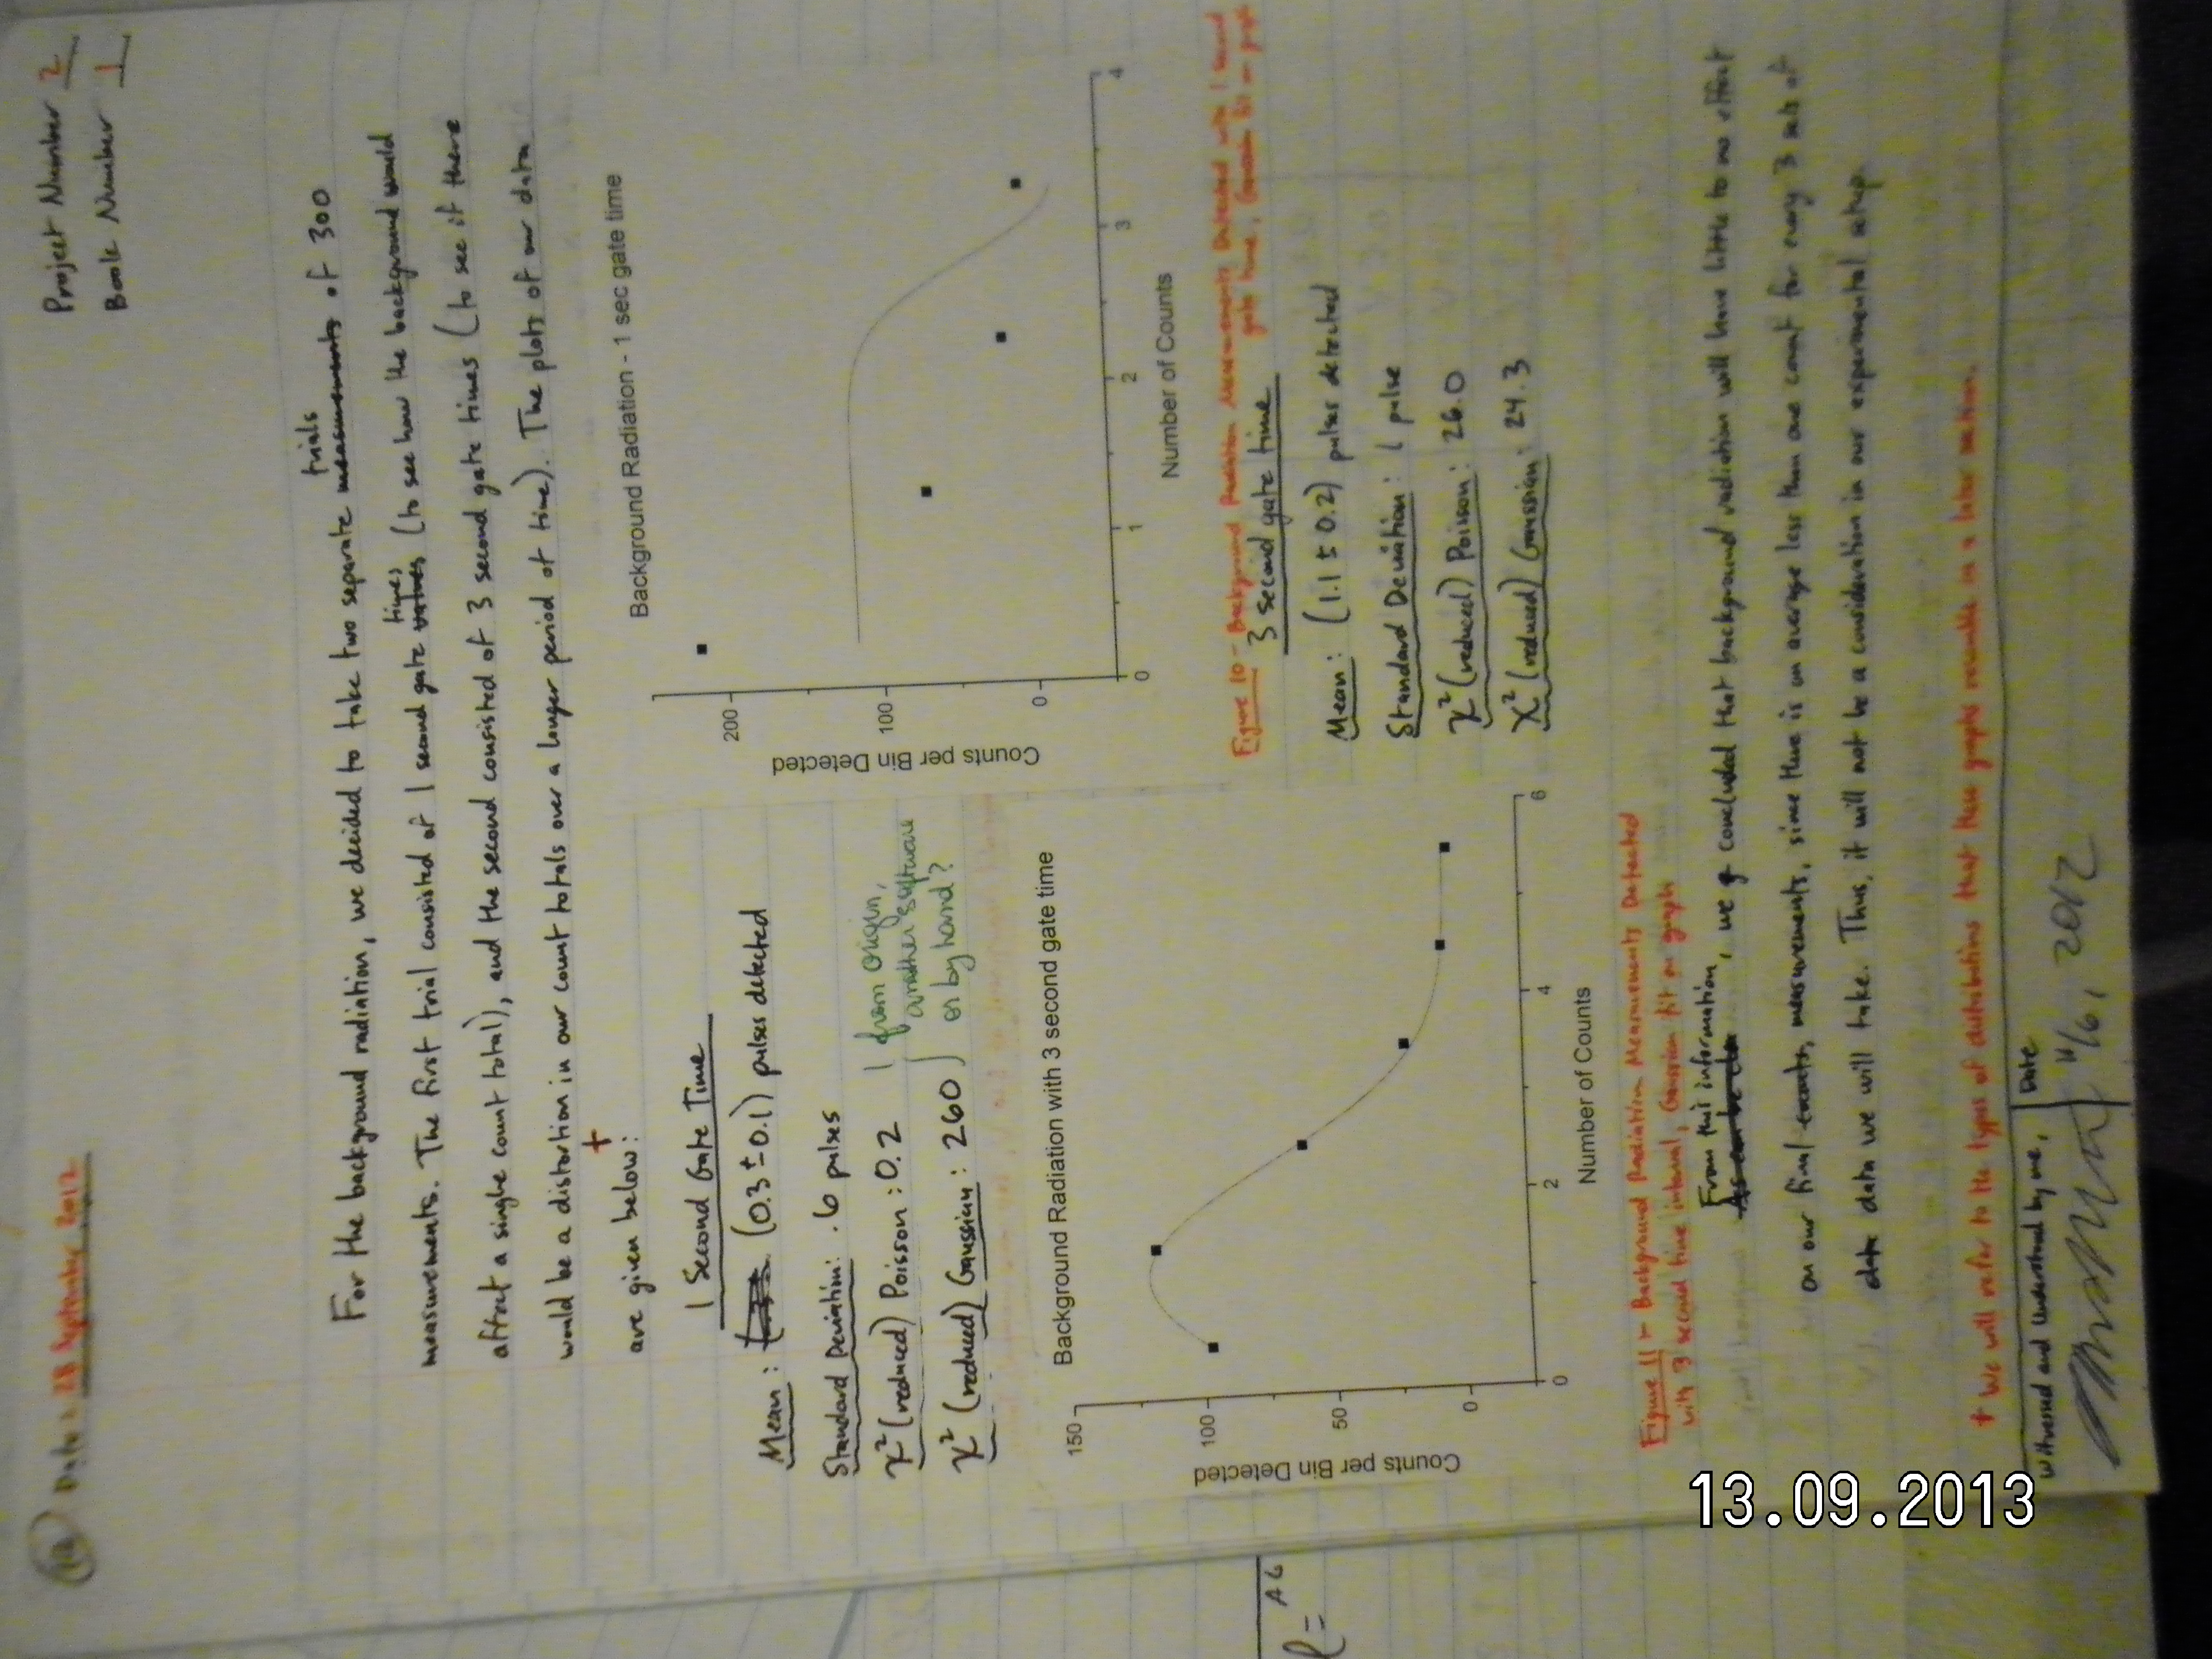 12
Date: 28 September 2012
Project Number 2
Book Number 1
For the background radiation, we decided to take two separate measurements trials of 300
measurements. The first trial consisted of 1 second gate times (to see how the background would
affect a single count total), and the second consisted of 3 second gate times (to see if there
would be a distortion in our count totals over a longer period of time). The plots of our data
are given below: +
1 Second Gate Time
Mean: (0.3 ± 0.1) pulses detected
Standard Deviation: .6 pulses
χ² (reduced) Poisson: 0.2
χ² (reduced) Gaussian: 260
from origin,
another software
or by hand?
Background Radiation - 1 sec gate time
Counts per Bin Detected
200
100
0
0
1
2
3
4
Number of Counts
Figure 10 - Background Radiation Measurements Detected with 1 second
gate time, Gaussian fit on graph
3 second gate time
Mean: (1.1 ± 0.2) pulses detected
Standard Deviation: 1 pulse
χ² (reduced) Poisson: 26.0
χ² (reduced) Gaussian: 24.3
Background Radiation with 3 second gate time
Counts per Bin Detected
150
100
50
0
0
2
4
6
Number of Counts
Figure 11 - Background Radiation Measurements Detected
with 3 second time interval, Gaussian fit on graph
As can be From this information, we concluded that background radiation will have little to no effect
on our final counts, measurements, since there is on average less than one count for every 3 sets of
data we will take. Thus, it will not be a consideration in our experimental setup.
+ We will refer to the types of distributions that these graphs resemble in a later section.
Witnessed and Understood by me,
Date
11/6, 2012
l =
AG
13.09.2013